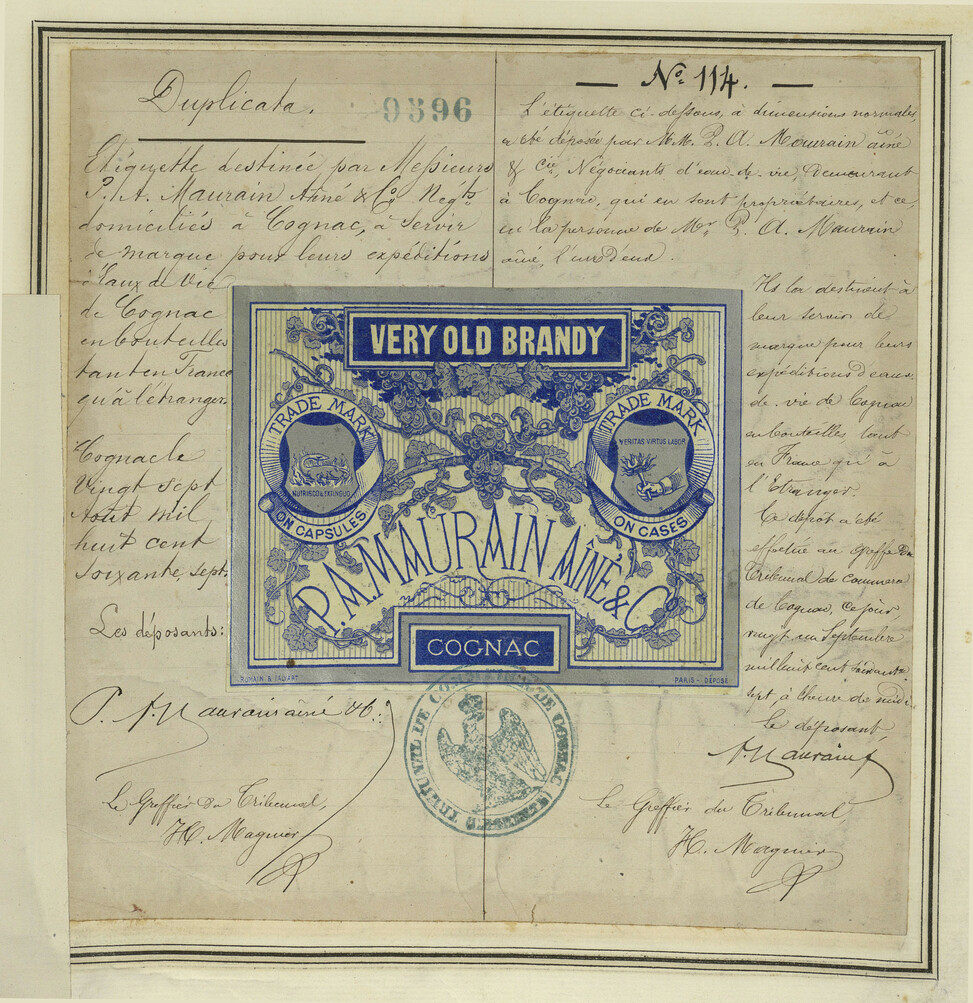 Duplicata.
0396
Etiquette destinée par Messieurs
P. A. Maurain Aîné & Co. Négts
domiciliés à Cognac, à servir
de marque pour leurs expéditions
d'Eaux de Vie
de Cognac
en bouteilles
tant en France
qu'à l'étranger.
Cognac le
Vingt sept
Août mil
huit cent
soixante, sept.
Les déposants:
P. A. Maurain aîné &c.
Le Greffier du Tribunal,
H. Magnier
No. 114.
L'étiquette ci-dessous, à dimensions normales,
a été déposée par M.M. P. A. Maurain aîné
& Cie, Négociants d'eau-de-vie, demeurant
à Cognac, qui en sont propriétaires, et ce,
en la personne de Mr. P. A. Maurain
aîné, l'un d'eux.
Ils la destinent à
leur servir de
marque pour leurs
expéditions d'eaux-
de-vie de Cognac
en bouteilles, tant
en France qu'à
l'Etranger.
Ce dépôt a été
effectué au Greffe du
Tribunal de commerce
de Cognac, ce jour
vingt un Septembre
mil huit cent soixante
sept, à l'heure de midi.
Le déposant,
A. Maurain
Le Greffier du Tribunal
H. Magnier
VERY OLD BRANDY
TRADE MARK
NUTRISCO & EXTINGUO
ON CAPSULES
TRADE MARK
VERITAS VIRTUS LABOR
ON CASES
P. A. MAURAIN AÎNÉ & Co
COGNAC
ROMAIN & PALYART
PARIS - DÉPOSÉ
TRIBUNAL DE COMMERCE DE COGNAC